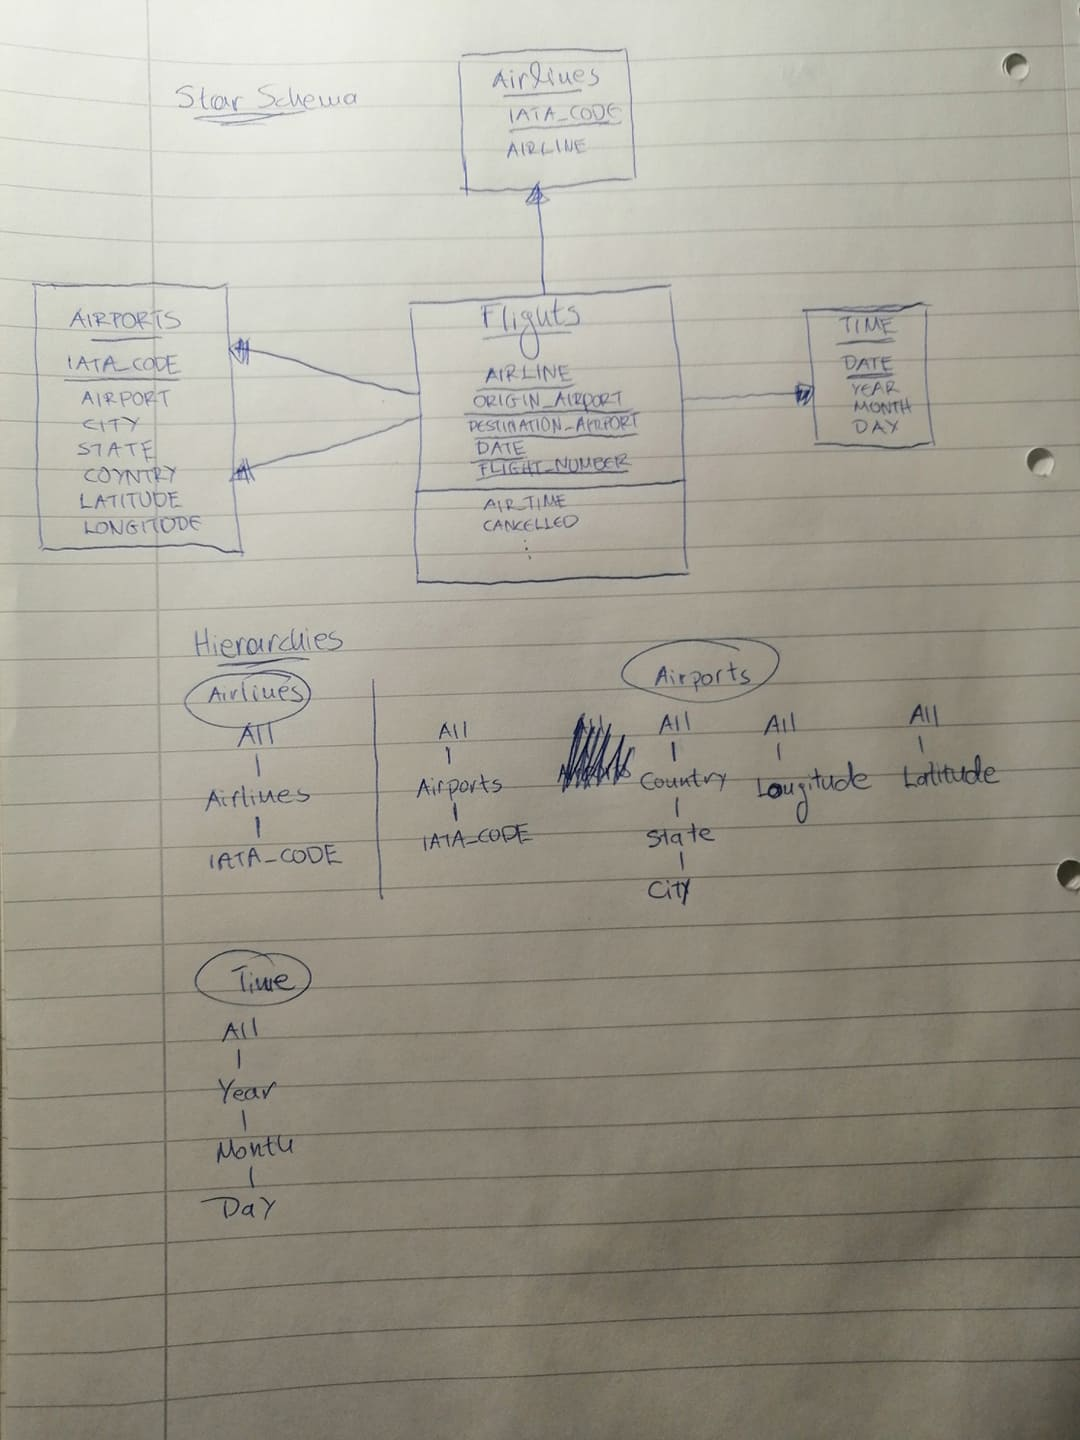 Star Schema
Airlines
IATA_CODE
AIRLINE
AIRPORTS
IATA_CODE
AIRPORT
CITY
STATE
COYNTRY
LATITUDE
LONGITUDE
Flights
AIRLINE
ORIGIN_AIRPORT
DESTINATION_AIRPORT
DATE
FLIGHT_NUMBER
AIR_TIME
CANCELLED
⋮
TIME
DATE
YEAR
MONTH
DAY
Hierarchies
Airlines
All
Airlines
IATA_CODE
Airports
All
Airports
IATA_CODE
All
Country
State
City
All
Longitude
All
Latitude
Time
All
Year
Month
Day